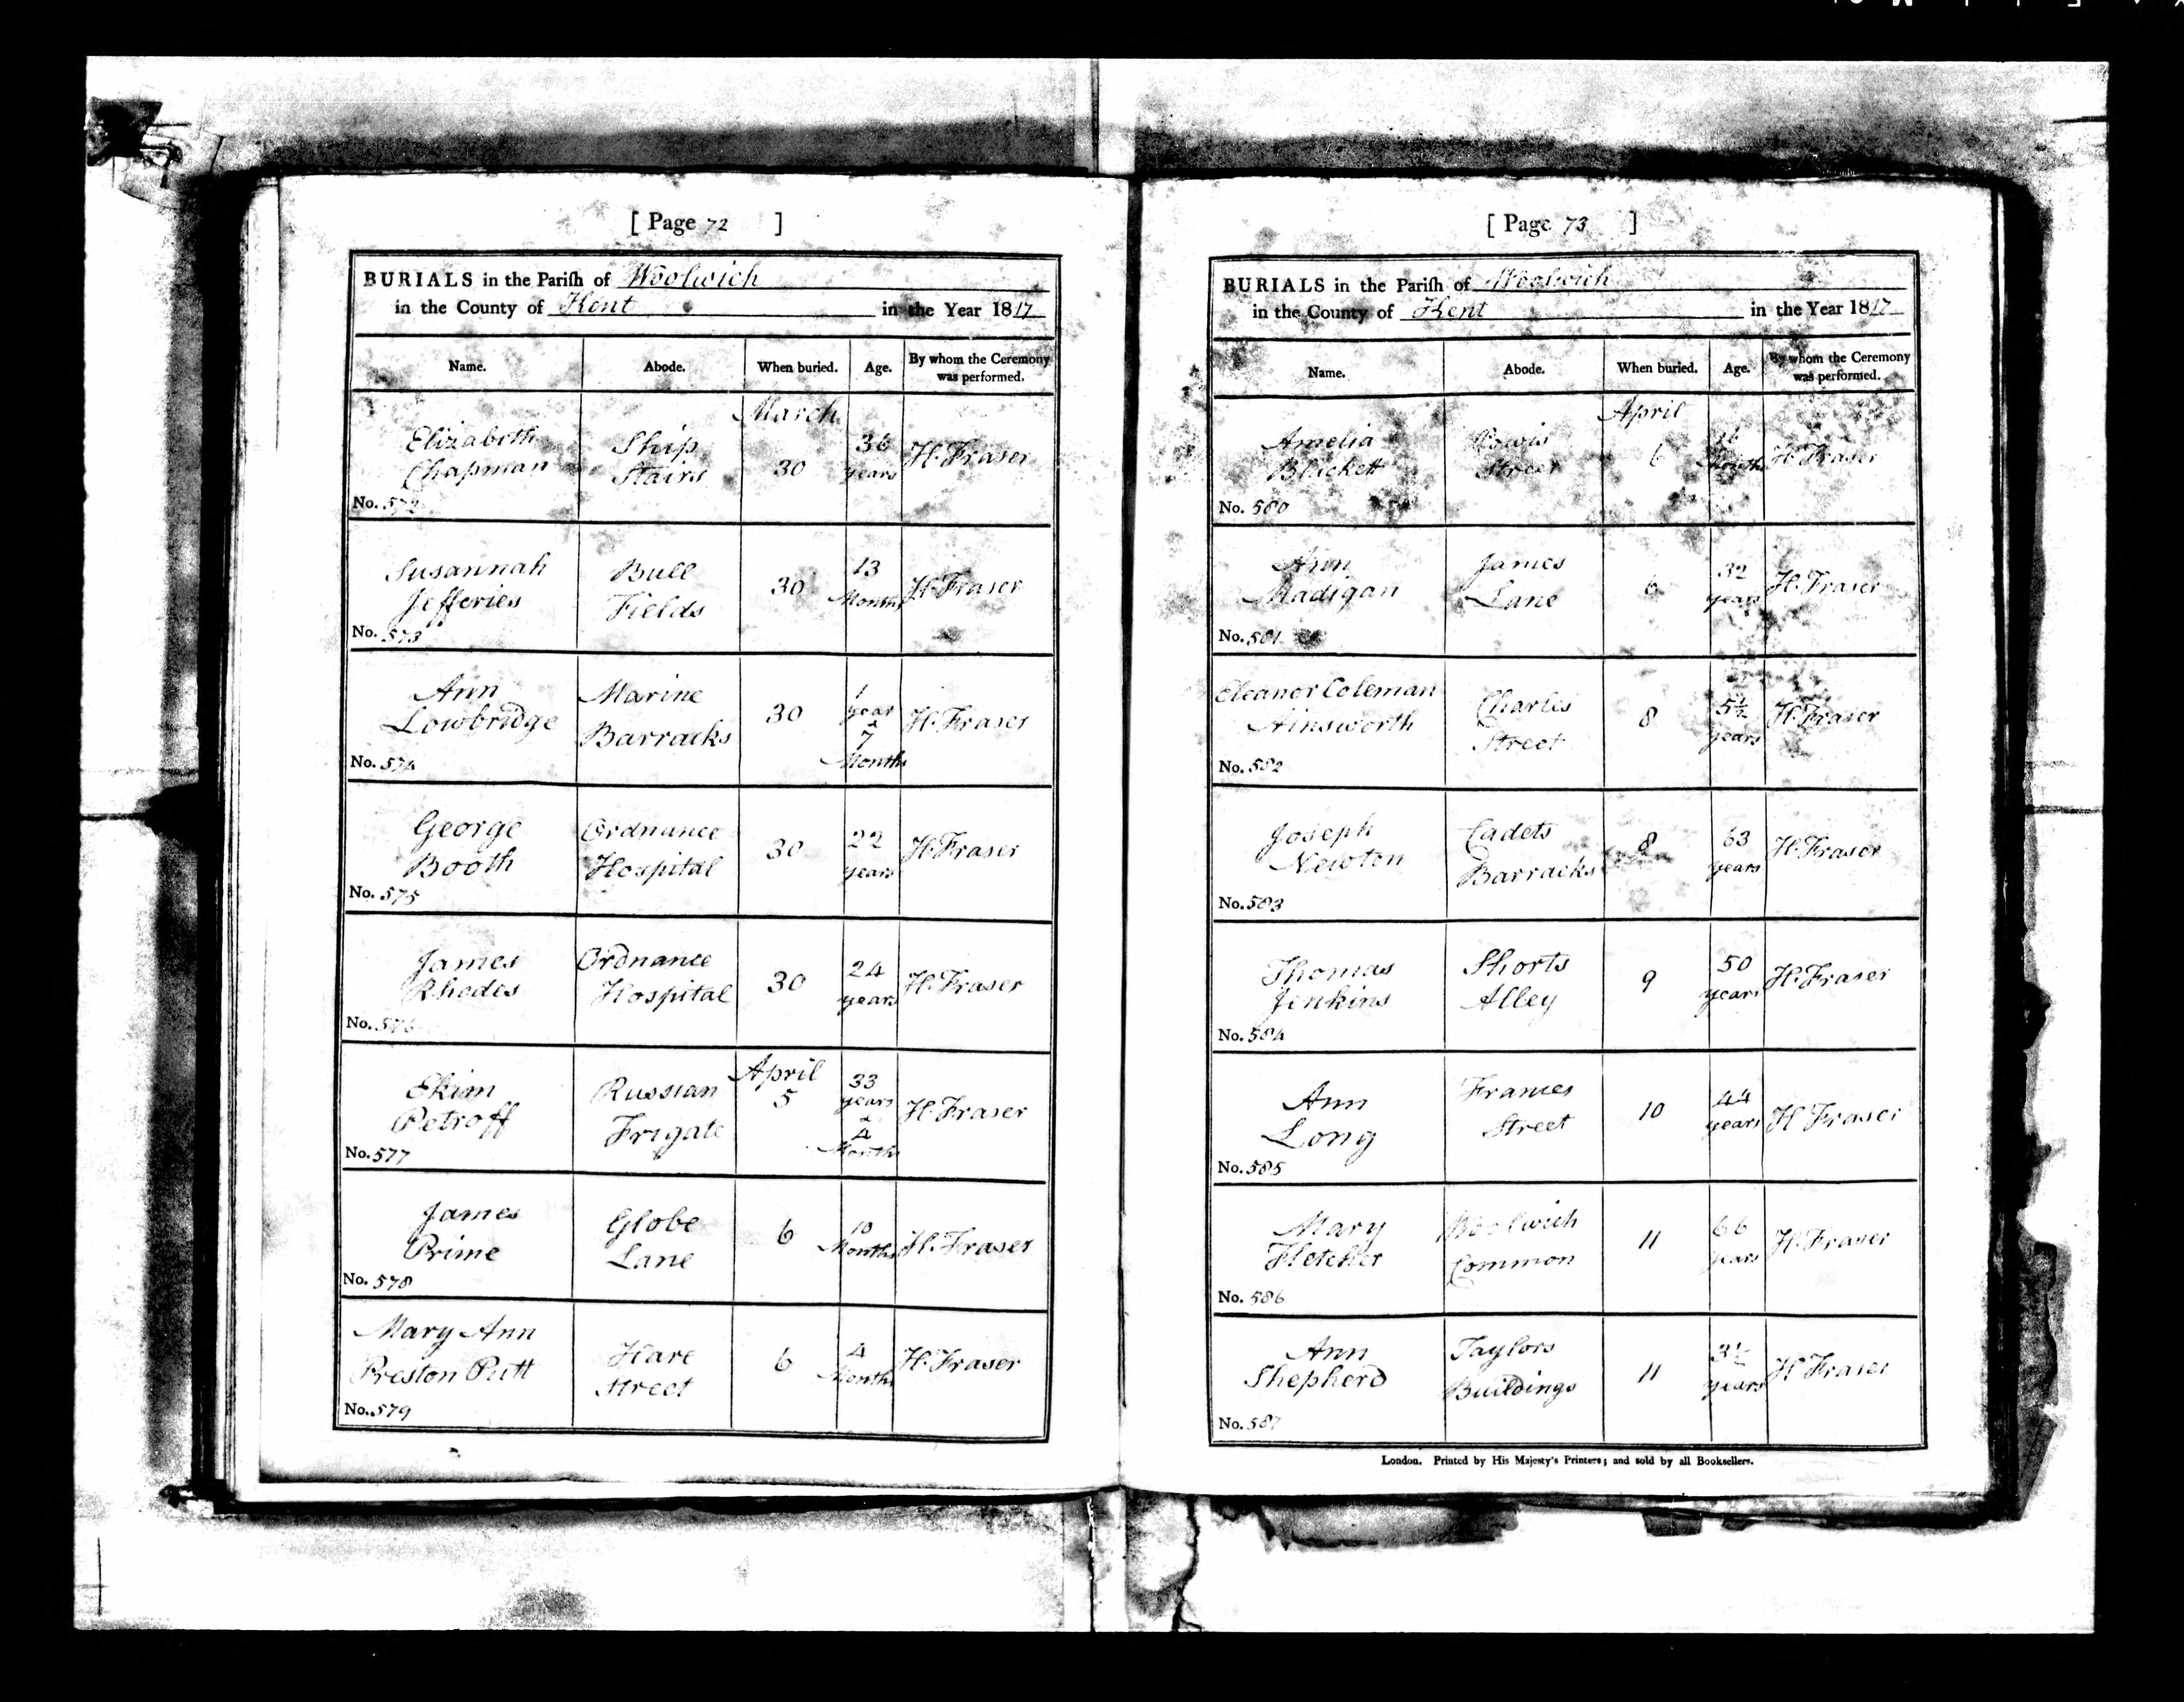 [ Page 72 ]
BURIALS in the Pariſh of Woolwich
in the County of Kent in the Year 1817
Name. Abode. When buried. Age. By whom the Ceremony was performed.
March
Elizabeth Ship 36
Chapman Stairs 30 years H. Fraser
No. 572
Susannah Bull 13
Jefferies Fields 30 Months H. Fraser
No. 573
Ann Marine 1
Lowbridge Barracks 30 year & 7 Months H. Fraser
No. 574
George Ordnance 22
Booth Hospital 30 years H. Fraser
No. 575
James Ordnance 24
Rhodes Hospital 30 years H. Fraser
No. 576
April
Ekim Russian 5 33 years
Petroff Frigate & 4 Months H. Fraser
No. 577
James Globe 10
Prime Lane 6 Months H. Fraser
No. 578
Mary Ann Hare 4
Preston Putt Street 6 Months H. Fraser
No. 579
[ Page 73 ]
BURIALS in the Pariſh of Woolwich
in the County of Kent in the Year 1817
Name. Abode. When buried. Age. By whom the Ceremony was performed.
April
Amelia Powis
Blackett Street 6 Months H. Fraser
No. 580
Ann James 32
Madigan Lane 6 years H. Fraser
No. 581
Eleanor Coleman Charles 5½
Ainsworth Street 8 years H. Fraser
No. 582
Joseph Cadets 63
Newton Barracks 8 years H. Fraser
No. 583
Thomas Shorts 50
Jenkins Alley 9 years H. Fraser
No. 584
Ann Frances 44
Long Street 10 years H. Fraser
No. 585
Mary Woolwich 66
Fletcher Common 11 years H. Fraser
No. 586
Ann Taylors 3½
Shepherd Buildings 11 years H. Fraser
No. 587
London. Printed by His Majesty's Printers; and sold by all Booksellers.